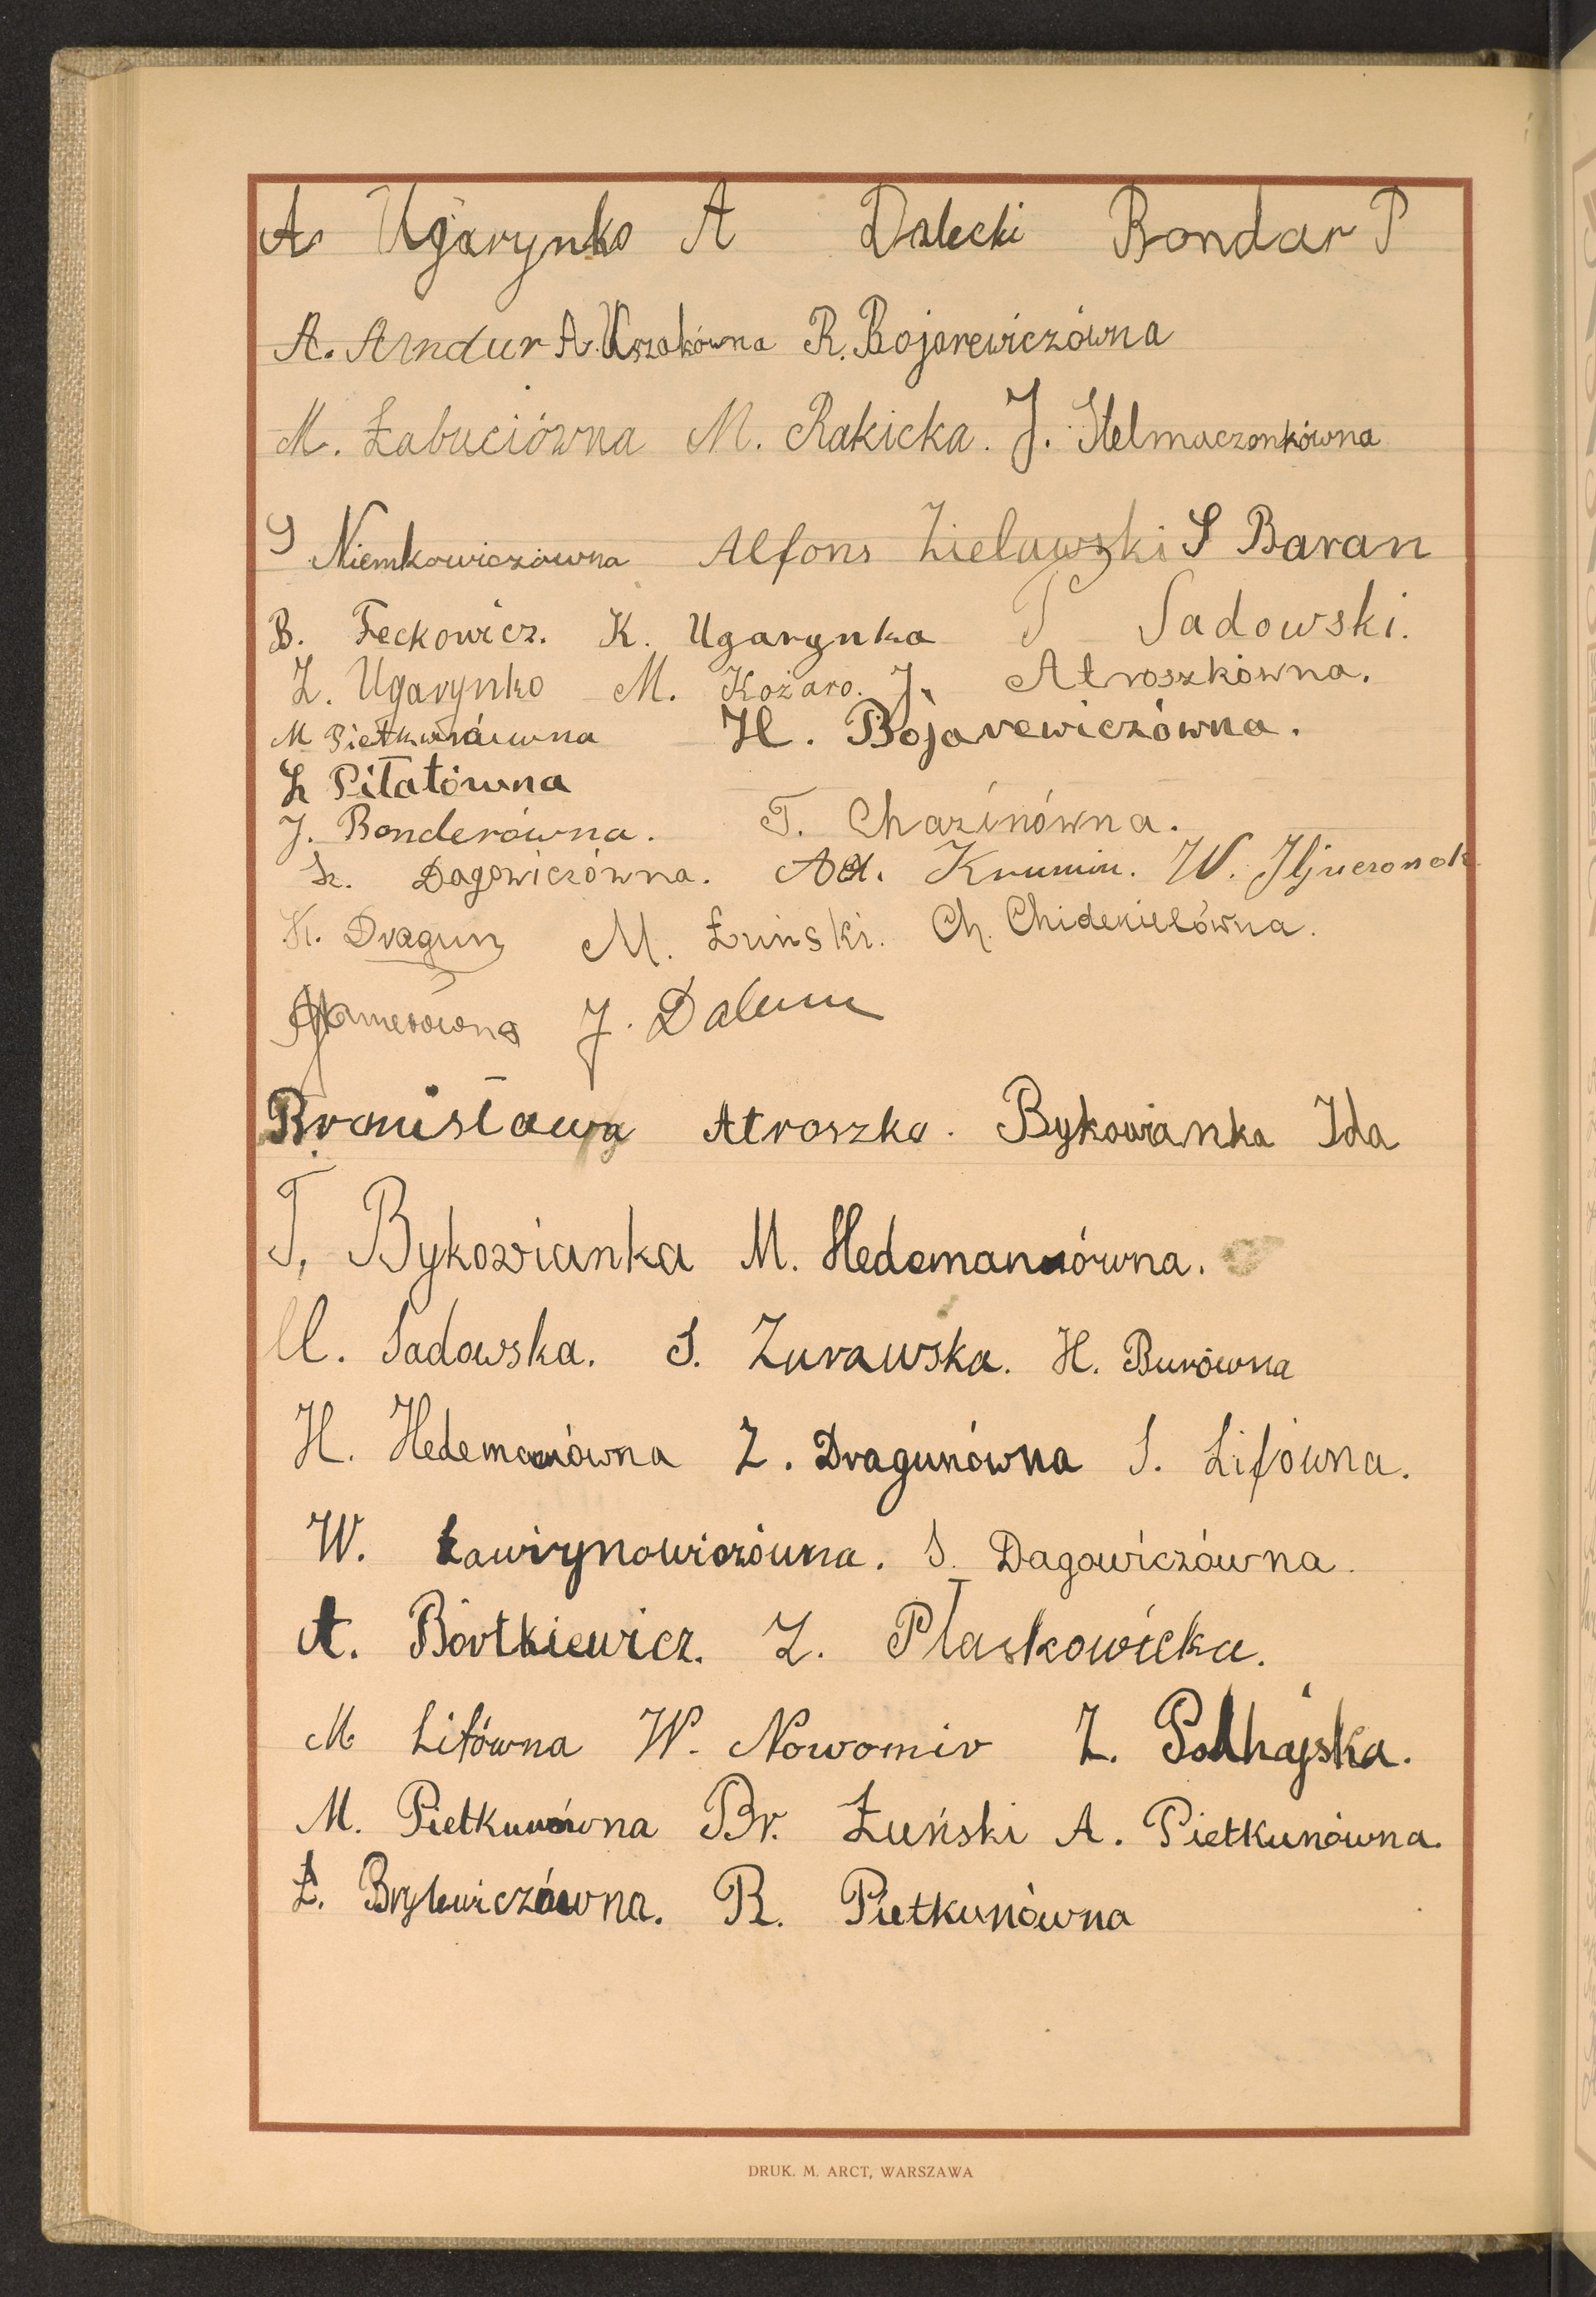 A Ugarynko A Dalecki Bondar P
A. Arndur A. Uszakówna R. Bojarewiczówna
M. Łabuciówna M. Rakicka. J. Stelmaczonkówna
S Niemkowiczówna Alfons Zielawski S Baran
B. Feckowicz. K. Ugarynka T Sadowski.
Z. Ugarynko M. Kożaro. J. Atroszkówna.
M Pietkunówna H. Bojarewiczówna.
L Piłatówna
J. Bonderówna. T. Chazinówna.
L. Dagowiczówna. Ad. Krumin. W. Iljuczonok
K. Dragun M. Łuński. Ch. Chidekielówna.
J. Dalum
Bronisława Atroszko. Bykowianka Ida
T. Bykowianka M. Hedemanówna.
M. Sadowska. S. Żurawska. H. Burówna
H. Hedemanówna Z. Dragunówna S. Lifówna.
W. Ławrynowiczówna. S. Dagowiczówna.
A. Bortkiewicz. Z. Płaskowicka.
M Lifówna W. Nowomir Z. Podhajska.
M. Pietkunówna Br. Łuński A. Pietkunówna.
Ł. Brylewiczówna. R. Pietkunówna
DRUK. M. ARCT, WARSZAWA